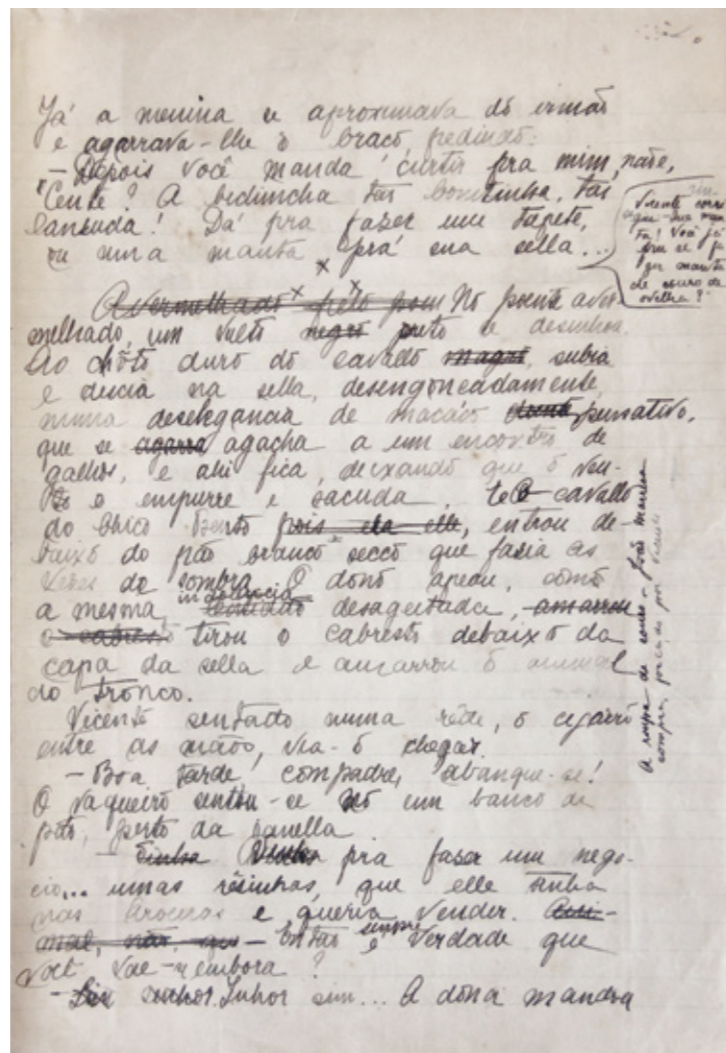 Já a menina se aproximava do irmão
e agarrava-lhe o braço, pedindo:
— Depois você manda curtir pra mim, não,
Cente? A bichinha tão bonitinha, tão
lanzuda! Dá pra fazer um tapete,
ou uma manta prá sua sella...
Avermelhado preto No poente aver-
melhado, um vulto negro preto se desenhou.
Ao chôto duro do cavallo magro, subia
e descia na sella, desengonçadamente,
numa deselegancia de macaco doente pensativo,
que se agarra agacha a um encontro de
galhos, e ahi fica, deixando que o ven-
to o empurre e sacuda. O cavallo
do Chico Bento pois era elle, entrou de-
baixo do páo branco secco que fazia as
vezes de sombra. O dono apeou, com
a mesma desageitada, amarrou
o cabresto tirou o cabresto debaixo da
capa da sella e amarrou o animal
ao tronco.
Vicente sentado numa rêde, o cigarro
entre as mãos, via-o chegar.
— Boa tarde, compadre, abanque-se!
O vaqueiro sentou-se num banco de
páo, perto da janella
— Vinha pra fazer um nego-
cio... umas rêsinhas, que elle tinha
nas Aroeiras e queria vender.
— Então sempre é verdade que
você vae-m'embora?
— Sim senhor. Inhor sim... A dona mandou
Vicente
que
Você já
viu se
por manta
de couro de
ovelha?
A roupa de couro — João Marreca
compra, por